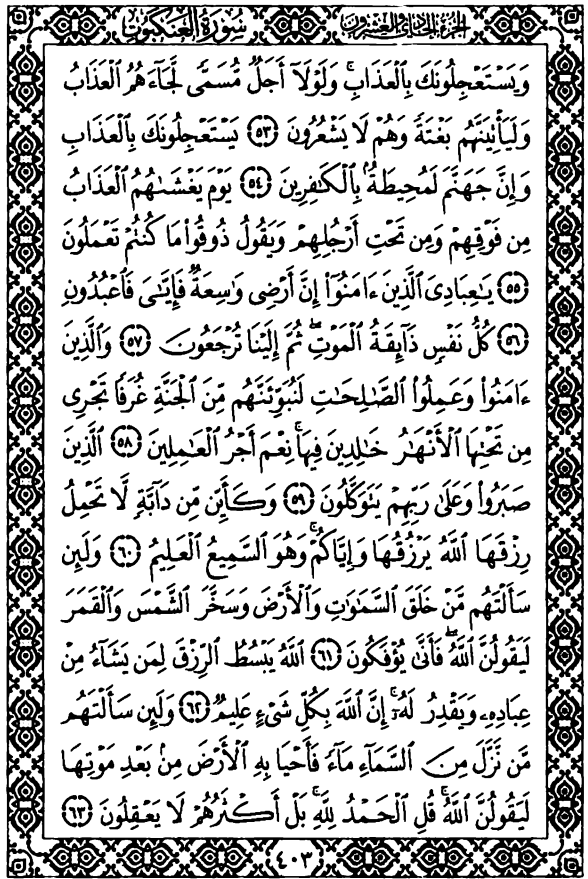 سُورَةُ العَنكَبُوتِ الجُزءُ الحَادِي وَالعِشرُونَ
وَيَسْتَعْجِلُونَكَ بِٱلْعَذَابِ ۚ وَلَوْلَآ أَجَلٌ مُّسَمًّى لَّجَآءَهُمُ ٱلْعَذَابُ
وَلَيَأْتِيَنَّهُم بَغْتَةً وَهُمْ لَا يَشْعُرُونَ ٥٣ يَسْتَعْجِلُونَكَ بِٱلْعَذَابِ
وَإِنَّ جَهَنَّمَ لَمُحِيطَةٌۢ بِٱلْكَٰفِرِينَ ٥٤ يَوْمَ يَغْشَىٰهُمُ ٱلْعَذَابُ
مِن فَوْقِهِمْ وَمِن تَحْتِ أَرْجُلِهِمْ وَيَقُولُ ذُوقُوا۟ مَا كُنتُمْ تَعْمَلُونَ
٥٥ يَٰعِبَادِىَ ٱلَّذِينَ ءَامَنُوٓا۟ إِنَّ أَرْضِى وَٰسِعَةٌ فَإِيَّٰىَ فَٱعْبُدُونِ
٥٦ كُلُّ نَفْسٍ ذَآئِقَةُ ٱلْمَوْتِ ۖ ثُمَّ إِلَيْنَا تُرْجَعُونَ ٥٧ وَٱلَّذِينَ
ءَامَنُوا۟ وَعَمِلُوا۟ ٱلصَّٰلِحَٰتِ لَنُبَوِّئَنَّهُم مِّنَ ٱلْجَنَّةِ غُرَفًا تَجْرِى
مِن تَحْتِهَا ٱلْأَنْهَٰرُ خَٰلِدِينَ فِيهَا ۚ نِعْمَ أَجْرُ ٱلْعَٰمِلِينَ ٥٨ ٱلَّذِينَ
صَبَرُوا۟ وَعَلَىٰ رَبِّهِمْ يَتَوَكَّلُونَ ٥٩ وَكَأَيِّن مِّن دَآبَّةٍ لَّا تَحْمِلُ
رِزْقَهَا ٱللَّهُ يَرْزُقُهَا وَإِيَّاكُمْ ۚ وَهُوَ ٱلسَّمِيعُ ٱلْعَلِيمُ ٦٠ وَلَئِن
سَأَلْتَهُم مَّنْ خَلَقَ ٱلسَّمَٰوَٰتِ وَٱلْأَرْضَ وَسَخَّرَ ٱلشَّمْسَ وَٱلْقَمَرَ
لَيَقُولُنَّ ٱللَّهُ ۖ فَأَنَّىٰ يُؤْفَكُونَ ٦١ ٱللَّهُ يَبْسُطُ ٱلرِّزْقَ لِمَن يَشَآءُ مِنْ
عِبَادِهِۦ وَيَقْدِرُ لَهُۥٓ ۚ إِنَّ ٱللَّهَ بِكُلِّ شَىْءٍ عَلِيمٌ ٦٢ وَلَئِن سَأَلْتَهُم
مَّن نَّزَّلَ مِنَ ٱلسَّمَآءِ مَآءً فَأَحْيَا بِهِ ٱلْأَرْضَ مِنۢ بَعْدِ مَوْتِهَا
لَيَقُولُنَّ ٱللَّهُ ۚ قُلِ ٱلْحَمْدُ لِلَّهِ ۚ بَلْ أَكْثَرُهُمْ لَا يَعْقِلُونَ ٦٣
٤٠٣